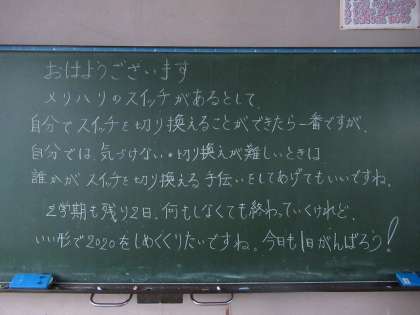 おはようございます
メリハリのスイッチがあるとして、
自分でスイッチを切り換えることができたら一番ですが、
自分では気づけない・切り換えが難しいときは
誰かがスイッチを切り換える手伝いをしてあげてもいいですね。
2学期も残り2日。何もしなくても終わっていくけれど、
いい形で2020をしめくくりたいですね。今日も1日がんばろう!